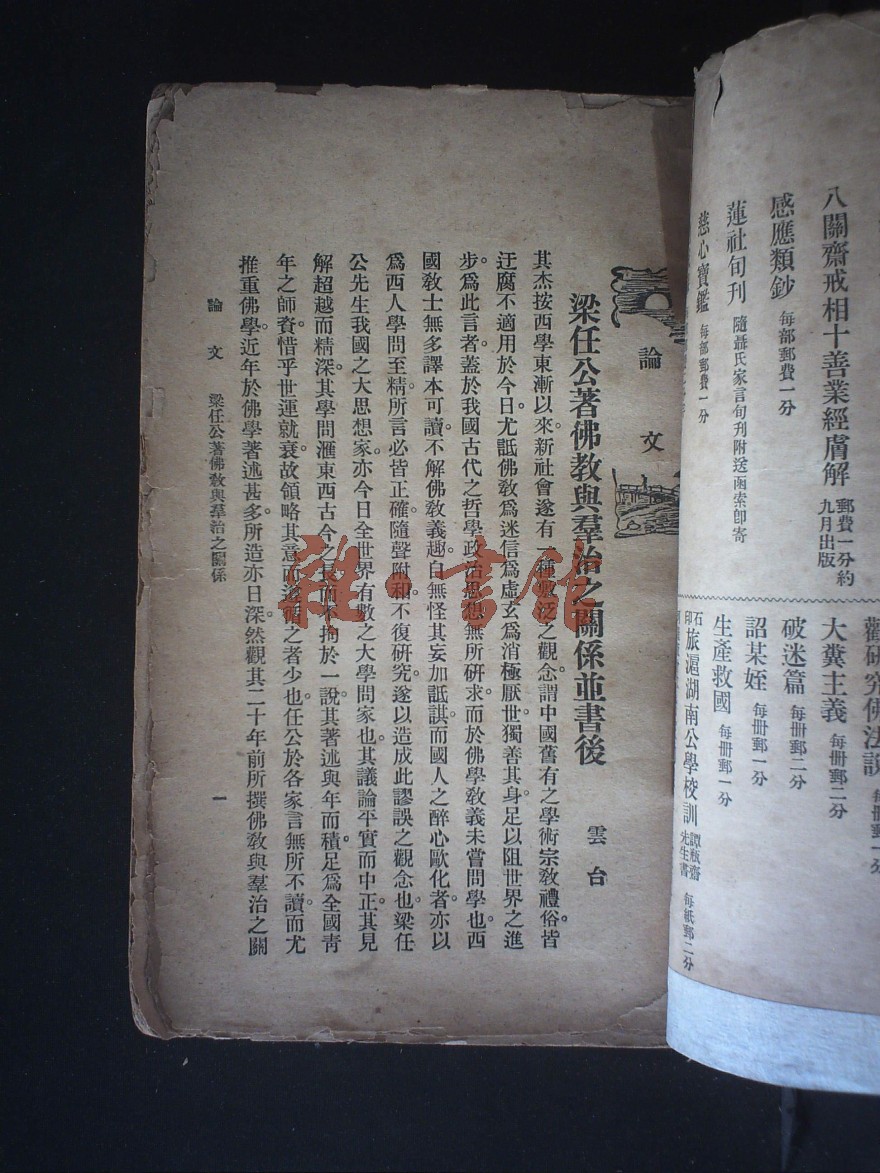 八關齋戒相十善業經膚解 郵費一分約九月出版
感應類鈔 每部郵費一分
蓮社旬刊 隨聶氏家言旬刊附送函索即寄
慈心寶鑑 每部郵費一分
勸研究佛法説 每冊郵一分
大糞主義 每冊郵二分
破迷篇 每冊郵二分
詔某姪 每冊郵一分
生產救國 每冊郵一分
石印旅滬湖南公學校訓 譚瓶齋先生書 每紙郵二分
論文
梁任公著佛教與羣治之關係並書後
雲台
其杰按西學東漸以來。新社會遂有一種泛之觀念。謂中國舊有之學術宗教禮俗。皆
迂腐不適用於今日。尤詆佛教爲迷信爲虛玄爲消極厭世獨善其身。足以阻世界之進
步。爲此言者。蓋於我國古代之哲學政治思想無所研求。而於佛學教義未嘗問學也。西
國教士無多譯本可讀。不解佛教義趣。自無怪其妄加詆諆。而國人之醉心歐化者。亦以
爲西人學問至精。所言必皆正確。隨聲附和。不復研究。遂以造成此謬誤之觀念也。梁任
公先生我國之大思想家。亦今日全世界有數之大學問家也。其議論平實而中正。其見
解超越而精深。其學問滙東西古今之長而不拘於一說。其著述與年而積。足爲全國靑
年之師資。惜乎世運就衰。故領略其意而遵循之者少也。任公於各家言無所不讀。而尤
推重佛學。近年於佛學著述甚多。所造亦日深。然觀其二十年前所撰佛教與羣治之關
論文 梁任公著佛教與羣治之關係
一